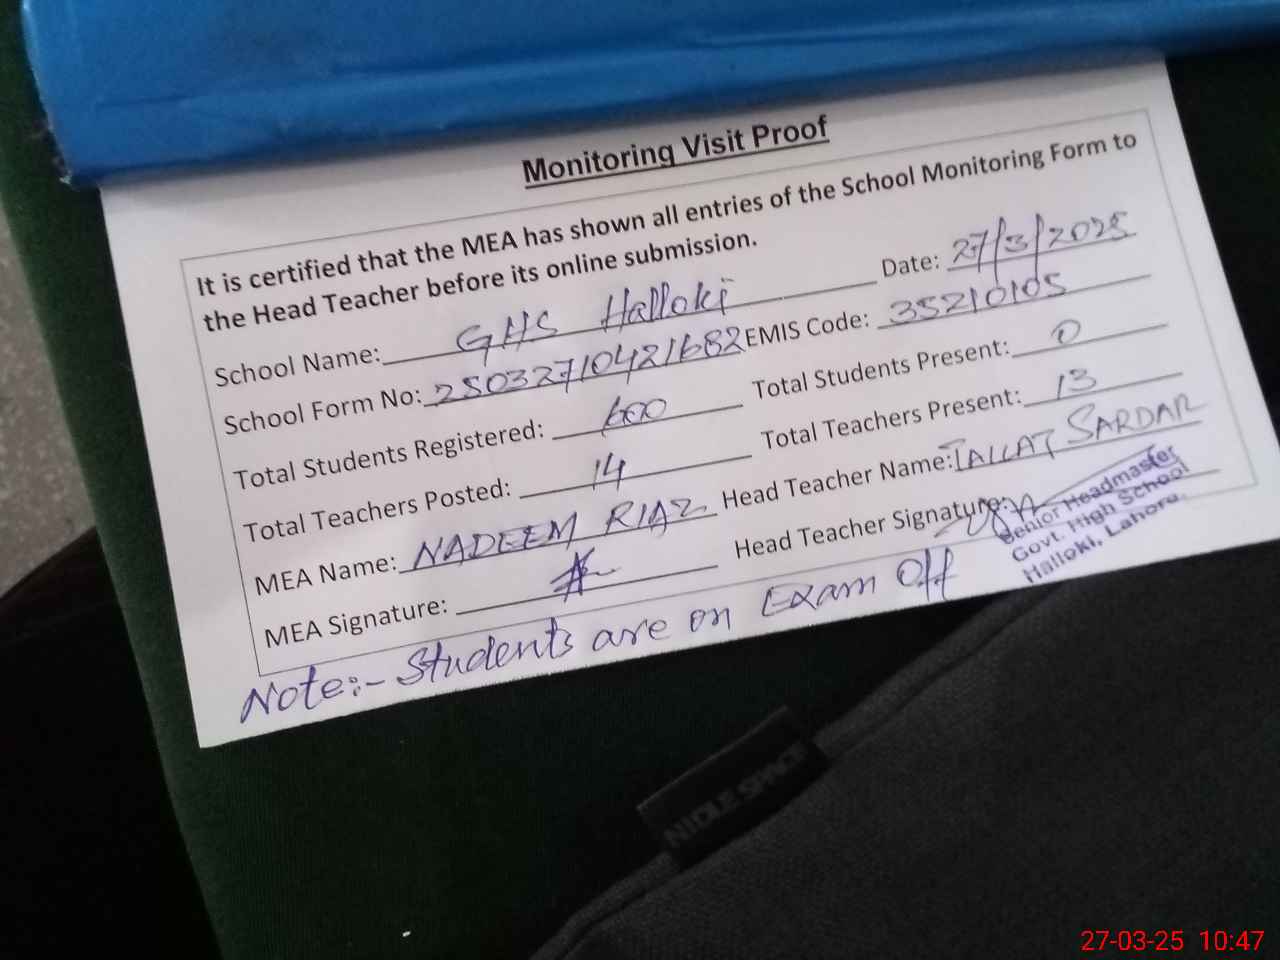 Monitoring Visit Proof
It is certified that the MEA has shown all entries of the School Monitoring Form to
the Head Teacher before its online submission.
School Name: GHS Halloki Date: 27/3/2025
School Form No: 25032710421682 EMIS Code: 35210105
Total Students Registered: 600 Total Students Present: 0
Total Teachers Posted: 14 Total Teachers Present: 13
MEA Name: NADEEM RIAZ Head Teacher Name: TALLAT SARDAR
MEA Signature: Head Teacher Signature:
Senior Headmaster
Govt. High School
Halloki, Lahore.
Note:- Students are on Exam Off
NICLE SPACE
27-03-25 10:47